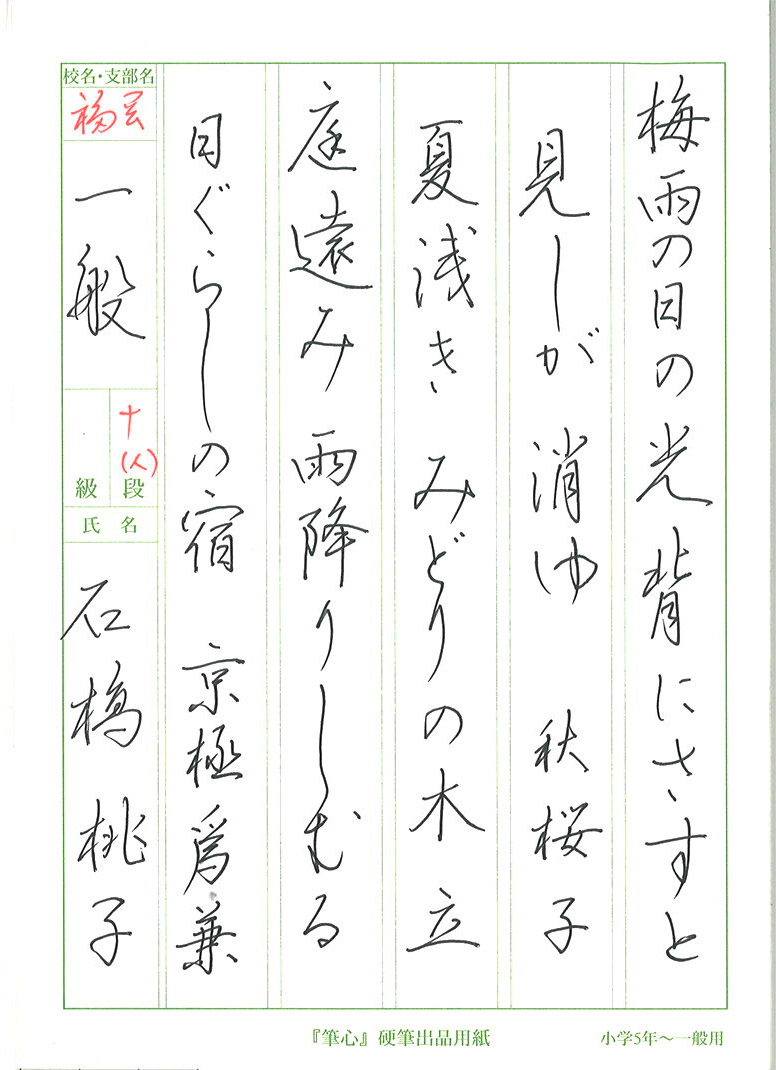 梅雨の日の光背にさすと
見しが 消ゆ 秋桜子
夏浅き みどりの木立
庭遠み 雨降りしむる
日ぐらしの宿 京極爲兼
校名・支部名
福岡
一般
十
(人)
級 段
氏 名
石橋 桃子
『筆心』硬筆出品用紙
小学5年〜一般用